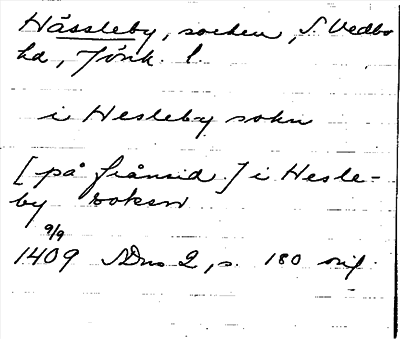 Hässleby, socken, S. Vedbo
hd, Jönk. l.
i Hesleby sokn
[på frånsid.] i Hesle-
by soken
9/9
1409 SDns 2, s. 180 orig.